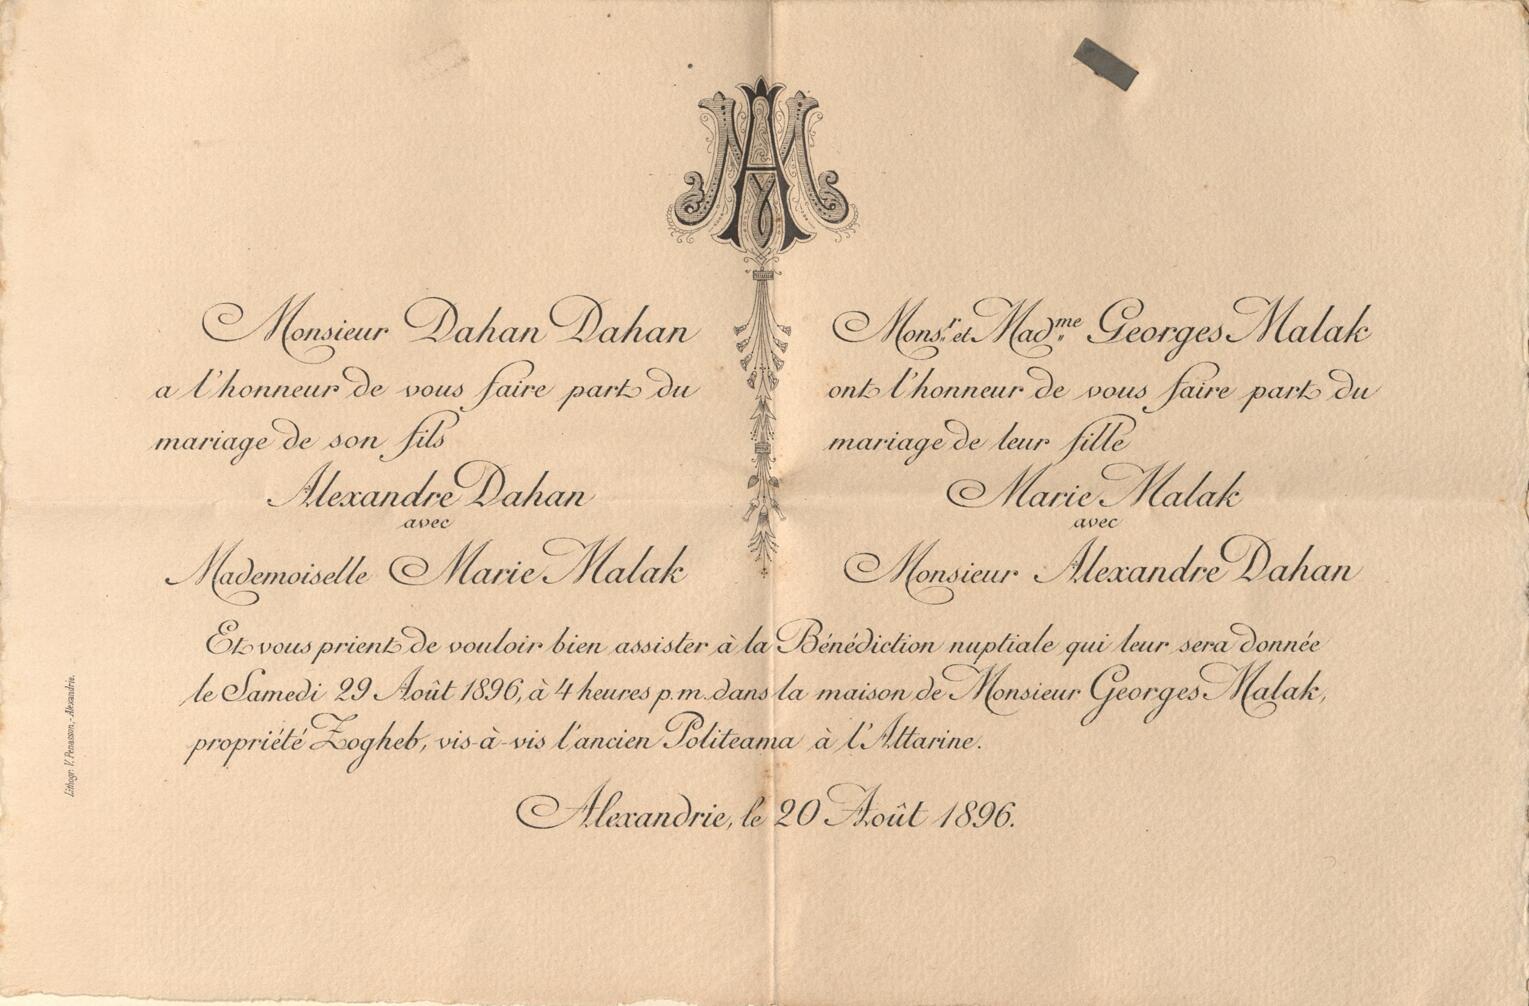 AM
Monsieur Dahan Dahan
a l'honneur de vous faire part du
mariage de son fils
Alexandre Dahan
avec
Mademoiselle Marie Malak
Monsr. et Madme. Georges Malak
ont l'honneur de vous faire part du
mariage de leur fille
Marie Malak
avec
Monsieur Alexandre Dahan
Et vous prient de vouloir bien assister à la Bénédiction nuptiale qui leur sera donnée
le Samedi 29 Août 1896, à 4 heures p.m. dans la maison de Monsieur Georges Malak,
propriété Zogheb, vis-à-vis l'ancien Politeama à l'Attarine.
Alexandrie, le 20 Août 1896.
Lithogr. V. Penasson,-Alexandrie.